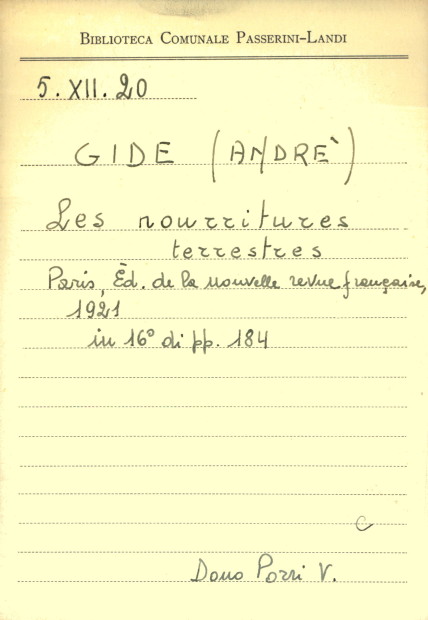 BIBLIOTECA COMUNALE PASSERINI-LANDI
5. XII. 20
GIDE (ANDRE`)
Les nourritures
terrestres
Paris, Èd. de la nouvelle revue française,
1921
in 16° di pp. 184
C
Dono Pozzi V.